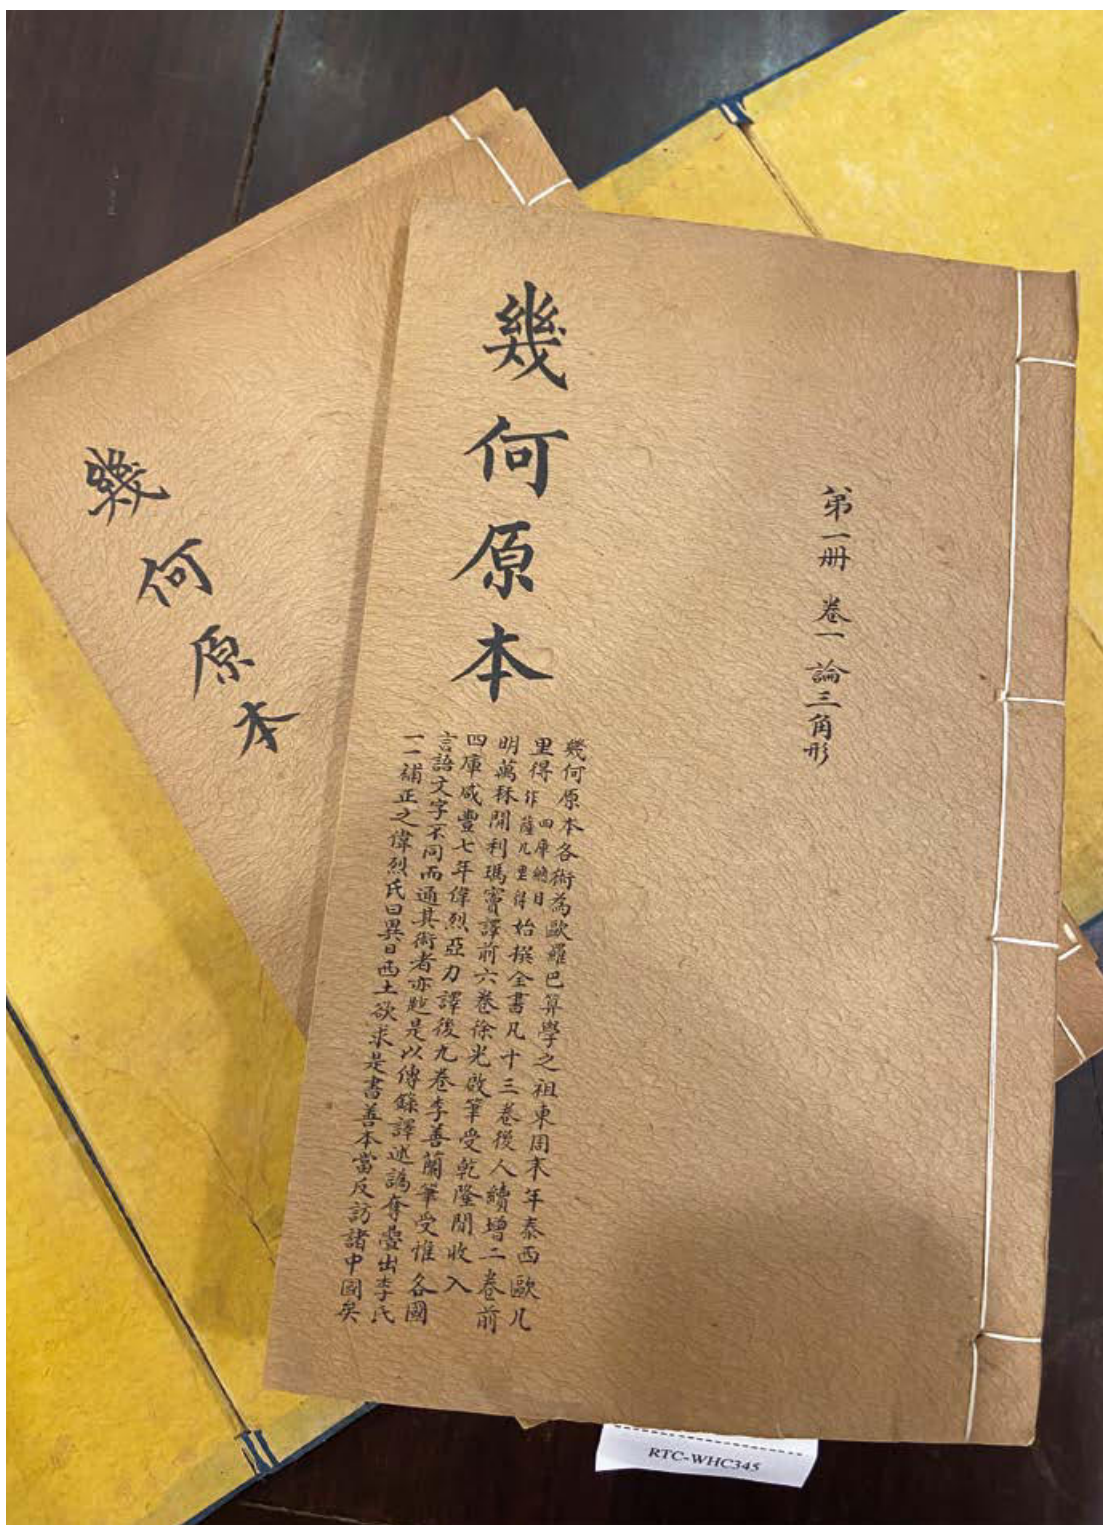 第一冊 卷一 論三角形
幾何原本
幾何原本各術為歐羅巴算學之祖東周末年泰西歐几
里得四庫總目作薩几里得始撰全書凡十三卷後人續增二卷前
明萬秝間利瑪竇譯前六卷徐光啟筆受乾隆間收入
四庫咸豐七年偉烈亞力譯後九卷李善蘭筆受惟各國
言語文字不同而通其術者亦尟是以傳錄譯述譌奪疊出李氏
一一補正之偉烈氏曰異日西土欲求是書善本當反訪諸中國矣
幾何原本
RTC-WHC345